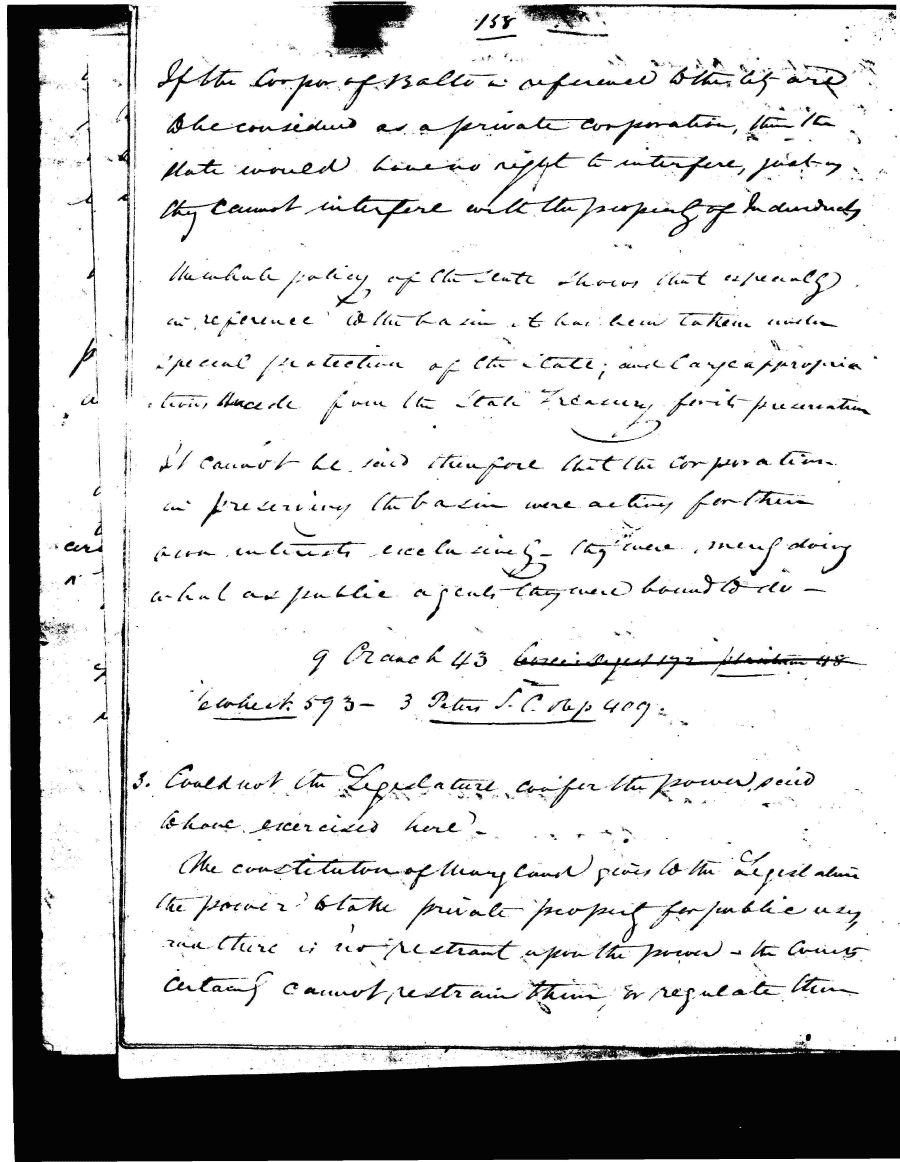 158
If the Corpor of Balto in reference to the City are
to be considered as a private Corporation, then the
State would have no right to interfere, just as
they cannot interfere with the property of Individuals
The whole policy of the State shows that especially
in reference to the basin it has been taken under
special protection of the State; and large appropria
tions made from the State Treasury for its preservation
It cannot be said therefore that the Corporation
in preserving the basin were acting for their
own interests exclusively - they were merely doing
what as public agents they were bound to do -
9 Cranch 43 Digest 192 48
Wheat 593 - 3 Peters S. C. Rep 409.
3. Could not the Legislature confer the power, said
to have exercised here -
The constitution of Maryland gives to the Legislature
the power to take private property for public uses,
and there is no restrant upon the power - the Courts
certainly cannot restrain them, or regulate them